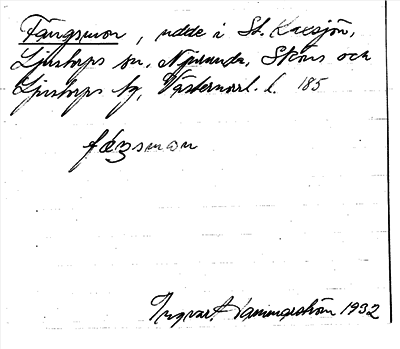 Fångsmon, udde i St. Laxsjön,
Ljustorps sn, Njurunda, Sköns och
Ljustorps tg, Västernorrl. l. 185
Ingvar Hammarström 1932